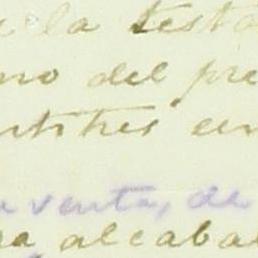 la testa
no del pre
ntitres en
venta, de
ra alcabal